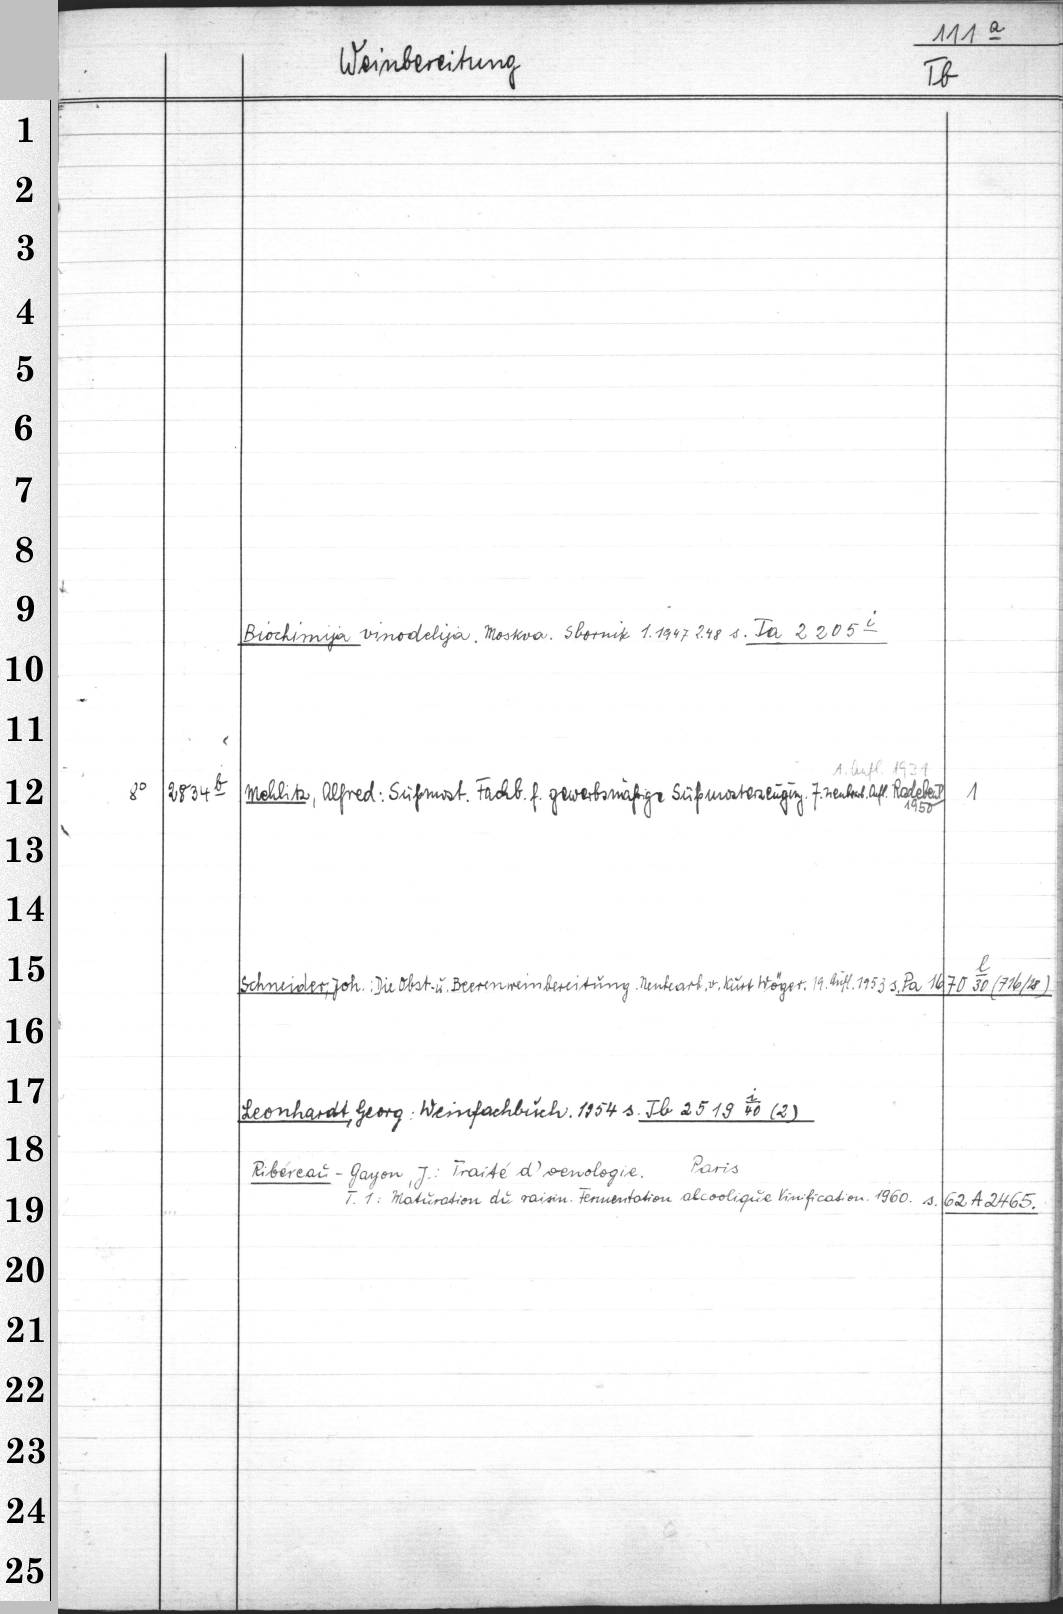 111 a
Weinbereitung
Tb
1
2
3
4
5
6
7
8
9
Biochimija vinodelija. Moskva. Sbornik 1.1947 2.48 s. Ta 2205 i
10
11
1. Aufl. 1931
12 8° 2834 b Mehlitz, Alfred: Süßmost. Fachb. f. gewerbsmäßige Süßmosterzeugung. 7. neubearb. Aufl. Radebeul 1
1950
13
14
15 Schneider, Joh.: Die Obst- u. Beerenweinbereitung. Neubearb. v. Kurt Wöger. 19. Aufl. 1953 s. Pa 1670 l/30 (716/18)
16
17
Leonhardt, Georg: Weinfachbuch. 1954 s. Tb 2519 i/40 (2)
18
Ribéreau-Gayon, J.: Traité d'oenologie. Paris
19 T. 1: Maturation du raisin. Fermentation alcoolique Vinification. 1960. s. 62 A 2465.
20
21
22
23
24
25